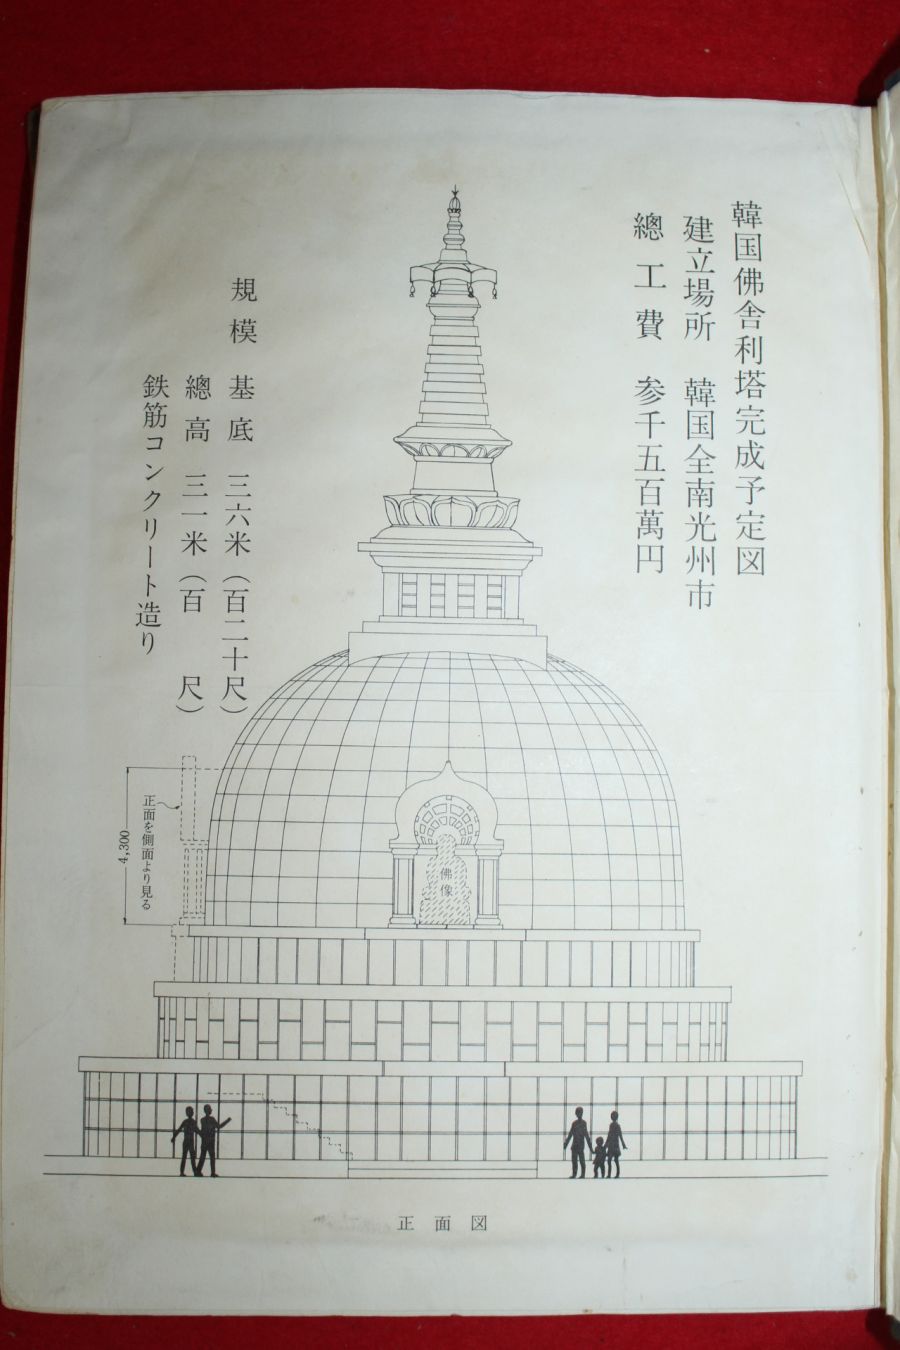 韓国佛舎利塔完成予定図
建立場所 韓国全南光州市
總工費 参千五百萬円
規模 基底 三六米（百二十尺）
總高 三一米（百 尺）
鉄筋コンクリート造り
正面を側面より見る
4,300
佛像
正面図